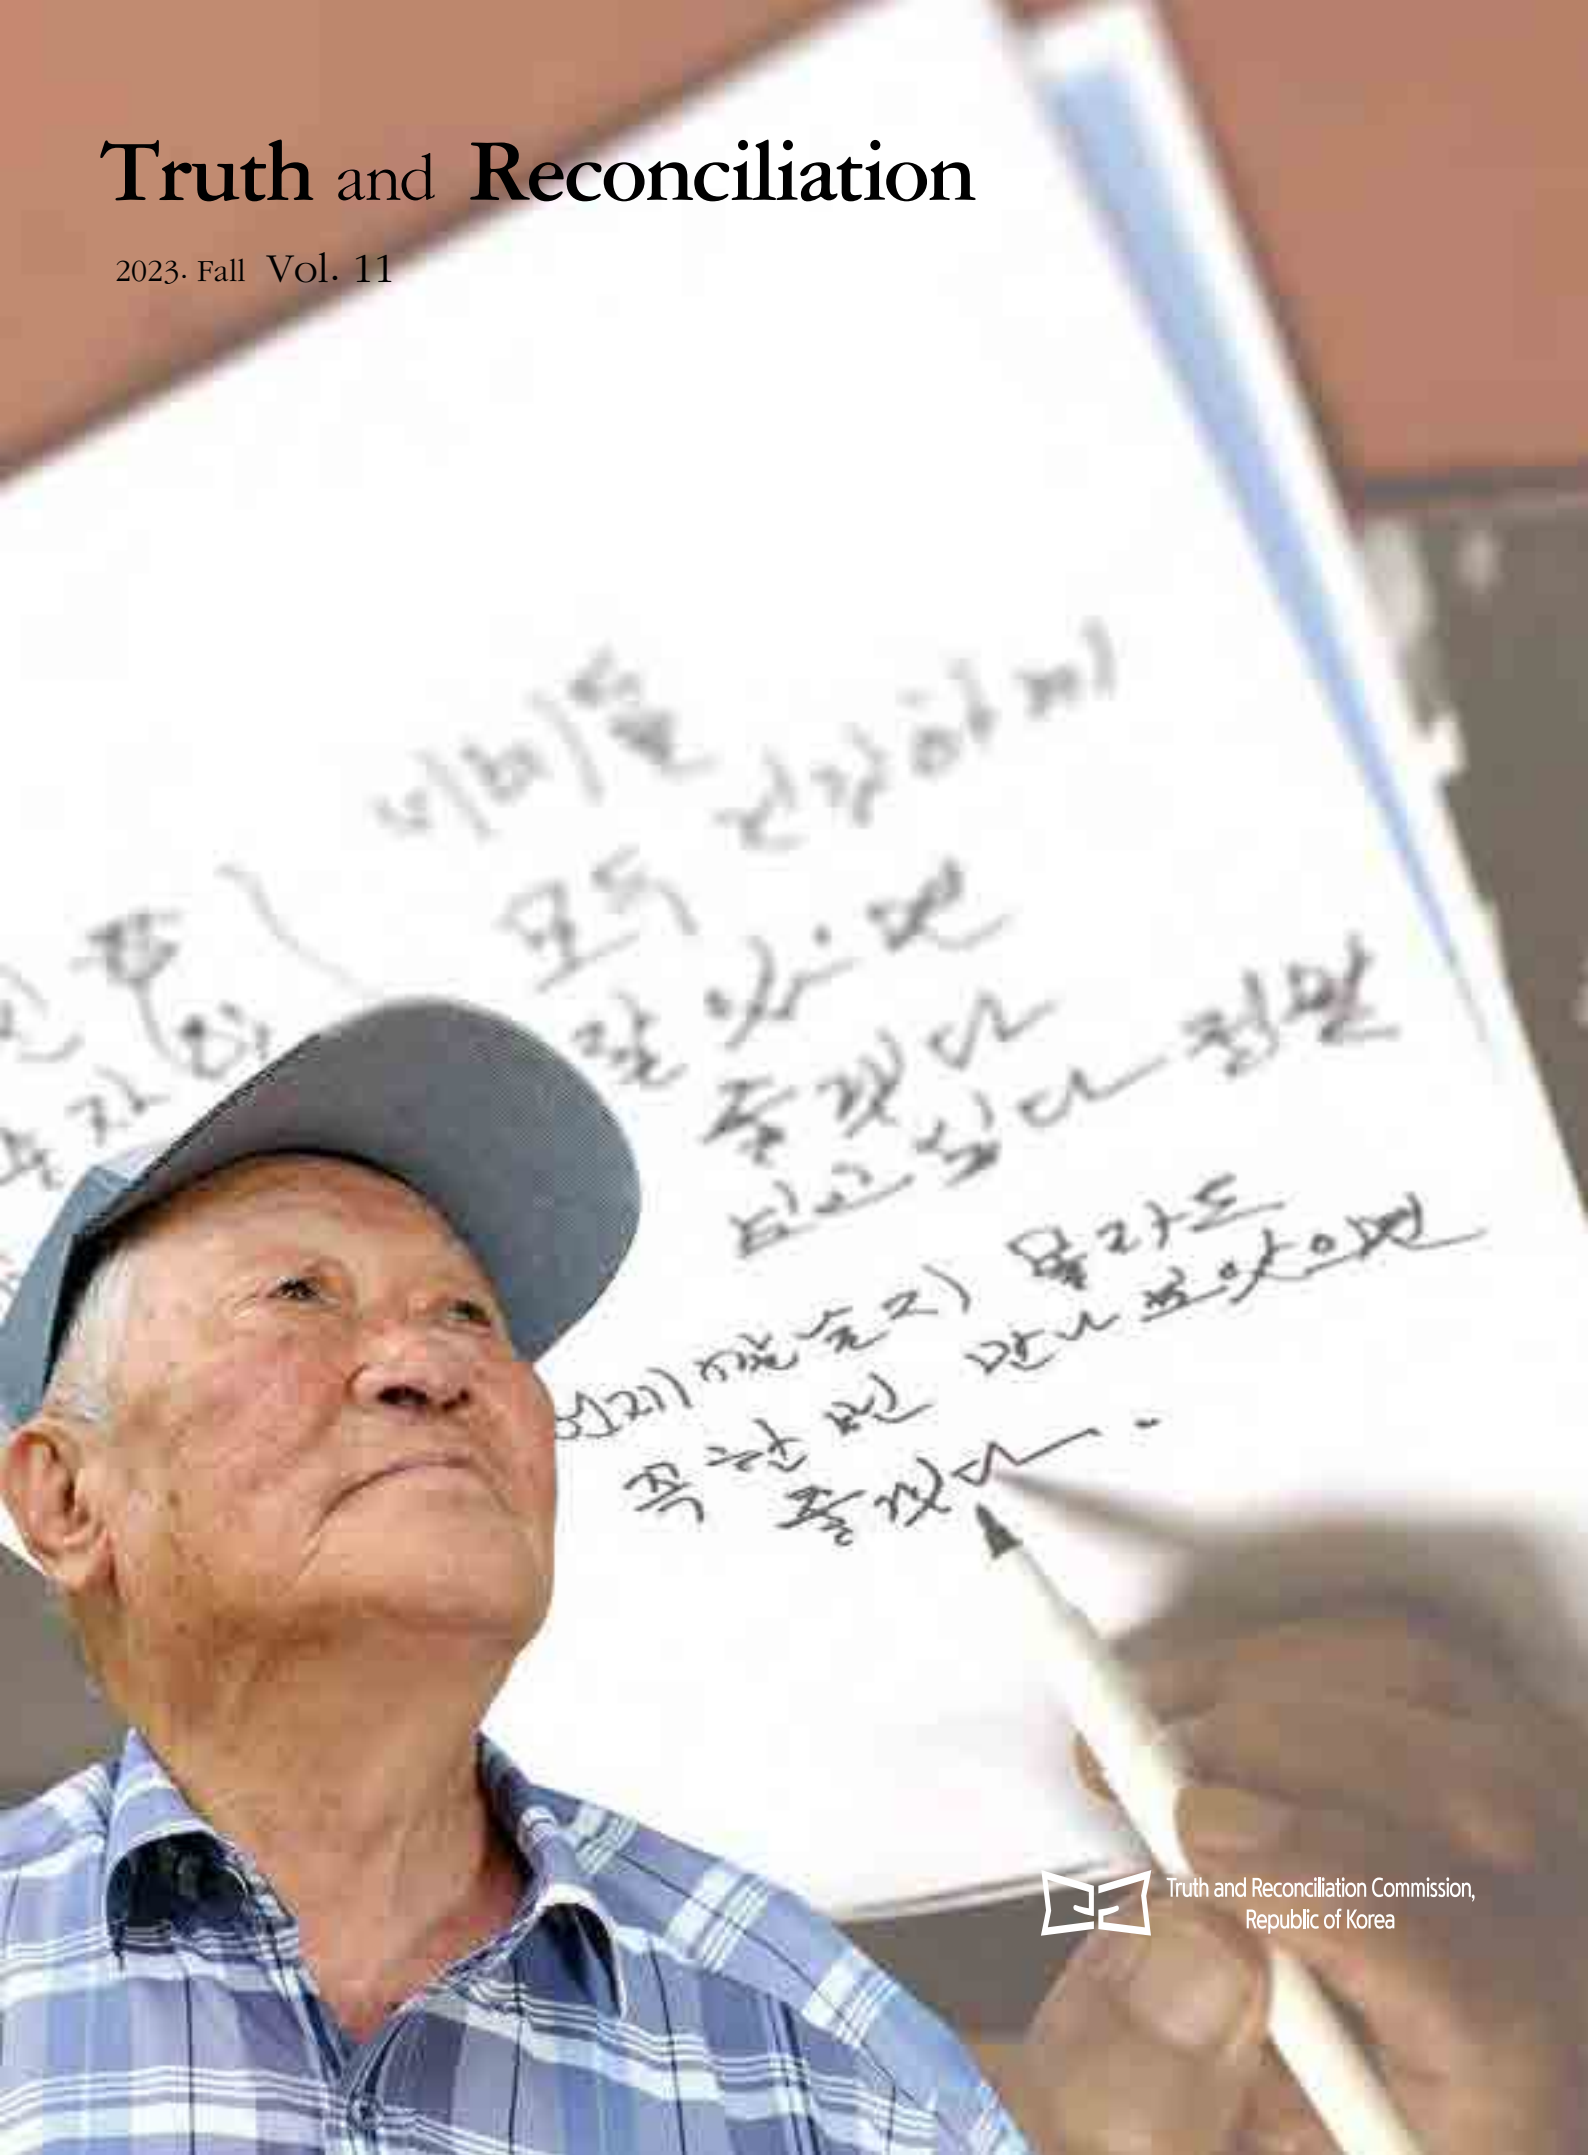 Truth and Reconciliation
2023. Fall Vol. 11
모두 건강하게
잘 있으면
좋겠다
보고 싶다 정말
언제 몰라도
꼭 한번 만나 보았으면
좋겠다..
Truth and Reconciliation Commission,
Republic of Korea